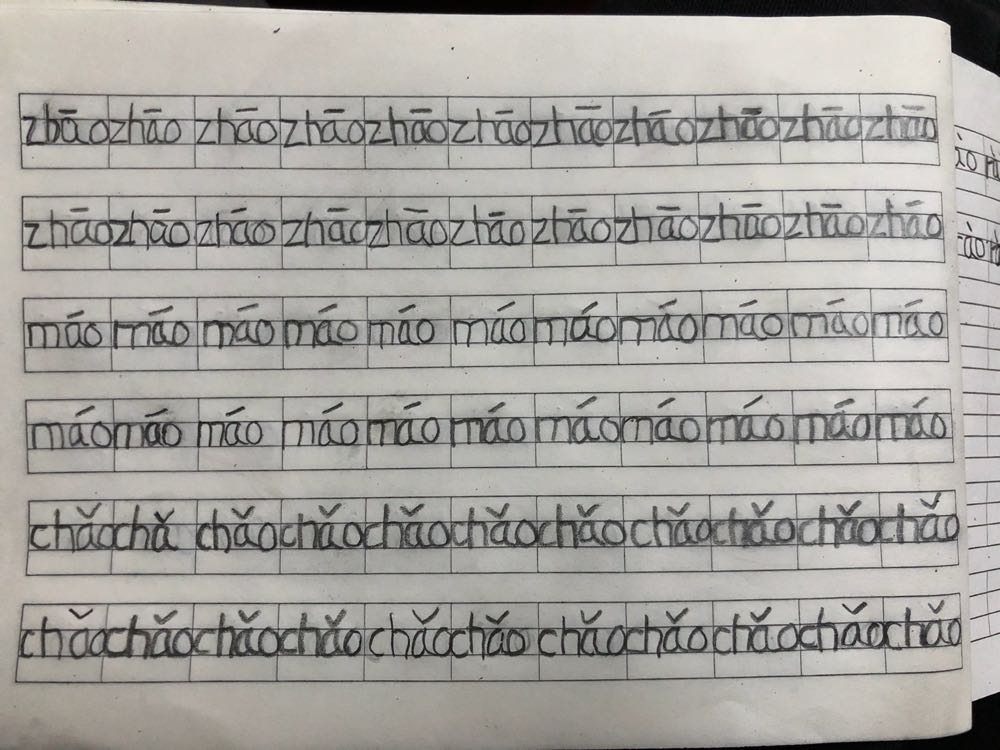 zhāo zhāo zhāo zhāo zhāo zhāo zhāo zhāo zhāo zhāo zhāo
zhāo zhāo zhāo zhāo zhāo zhāo zhāo zhāo zhāo zhāo zhāo
máo máo máo máo máo máo máo máo máo máo máo
máo máo máo máo máo máo máo máo máo máo máo
chǎo chǎ chǎo chǎo chǎo chǎo chǎo chǎo chǎo chǎo chǎo
chǎo chǎo chǎo chǎo chǎo chǎo chǎo chǎo chǎo chǎo chǎo